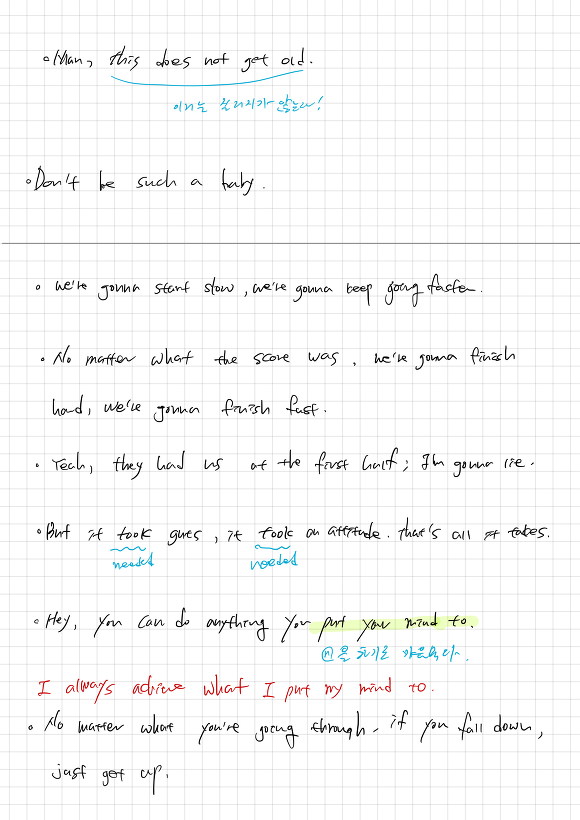 • Man, this does not get old.
이거는 질리지가 않는다!
• Don't be such a baby.
• We're gonna start slow, we're gonna keep going faster.
• No matter what the score was, we're gonna finish
hard, we're gonna finish fast.
• Yeah, they had us at the first half; I'm gonna lie.
• But it took guts, it took an attitude. that's all it takes.
needed needed
• Hey, you can do anything you put your mind to.
ⓝ을 하기로 마음먹다.
I always achieve what I put my mind to.
• No matter what you're going through, if you fall down,
just get up.